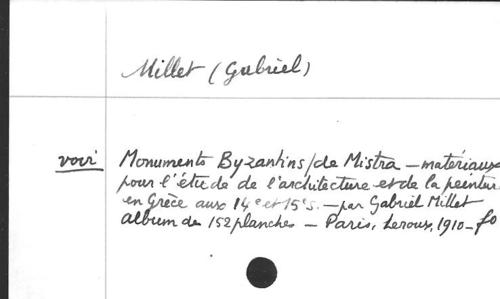 Millet (Gabriel)
voir Monuments Byzantins/de Mistra – matériaux
pour l'étude de l'architecture et de la peinture
en Grèce aux 14e et 15e s. – par Gabriel Millet
album de 152 planches – Paris, Leroux, 1910 – fo